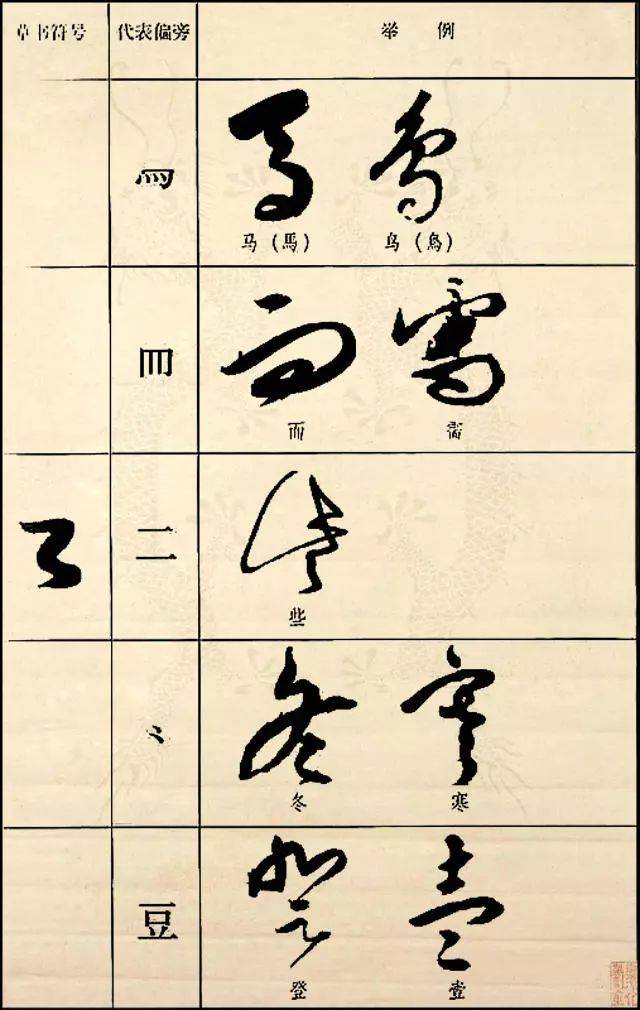 草书符号 代表偏旁 举例
马(馬) 乌(烏)
而 需
二
些
冬 寒
豆
登 壹